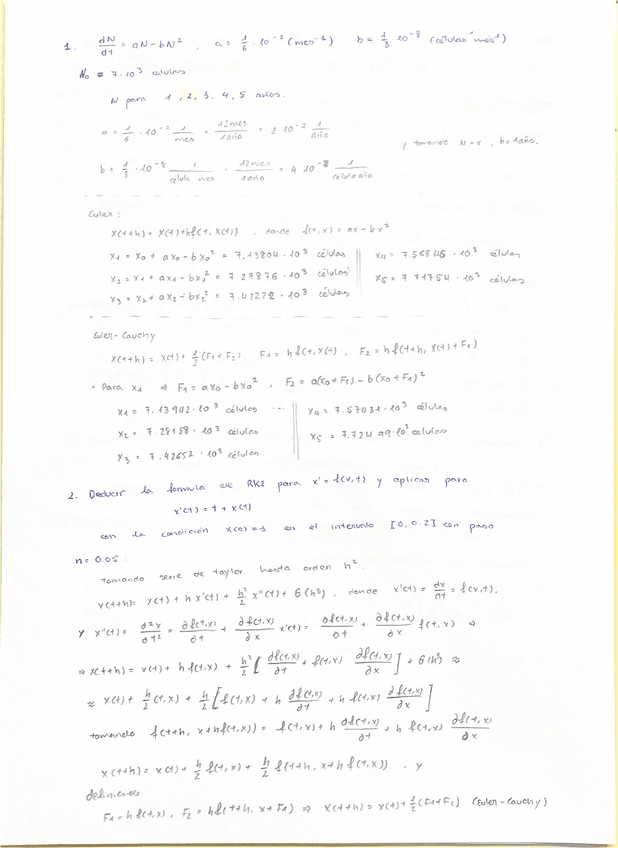 1. dN/dt = aN - bN² , a = 1/6 · 10⁻² (mes⁻¹) b = 1/3 10⁻⁸ (células⁻¹ mes⁻¹)
N₀ = 7·10³ células
N para 1, 2, 3, 4, 5 años.
a = 1/6 · 10⁻² 1/mes · 12 mes/1 año = 2 10⁻² 1/año
y tomando N = x , h = 1 año.
b = 1/3 · 10⁻⁸ 1/célula mes · 12 mes/1 año = 4 10⁻⁸ 1/célula año
Euler :
x(t+h) = x(t) + h f(t, x(t)) , donde f(t,x) = ax - bx²
x₁ = x₀ + ax₀ - bx₀² = 7.13804 · 10³ células
x₂ = x₁ + ax₁ - bx₁² = 7.27876 · 10³ células
x₃ = x₂ + ax₂ - bx₂² = 7.42222 · 10³ células
x₄ = 7.56846 · 10³ células
x₅ = 7.71754 · 10³ células
Euler-Cauchy
x(t+h) = x(t) + 1/2 (F₁ + F₂) , F₁ = h f(t, x(t)) , F₂ = h f(t+h, x(t) + F₁)
· Para x₁ ⇒ F₁ = ax₀ - bx₀² , F₂ = a(x₀+F₁) - b(x₀+F₁)²
x₁ = 7.13942 · 10³ células ...
x₂ = 7.28158 · 10³ células
x₃ = 7.42652 · 10³ células
x₄ = 7.57431 · 10³ células
x₅ = 7.72499 · 10³ células
2. Deducir la formula de RK2 para x' = f(x,t) y aplicar para
x'(t) = t + x(t)
con la condición x(0) = 1 en el intervalo [0, 0.2] con paso
h = 0.05.
tomando serie de taylor hasta orden h².
x(t+h) = x(t) + h x'(t) + h²/2 x''(t) + O(h³) , donde x'(t) = dx/dt = f(x,t).
y x''(t) = d²x/dt² = ∂f(t,x)/∂t + ∂f(t,x)/∂x x'(t) = ∂f(t,x)/∂t + ∂f(t,x)/∂x f(t,x) ⇒
⇒ x(t+h) = x(t) + h f(t,x) + h²/2 [ ∂f(t,x)/∂t + f(t,x) ∂f(t,x)/∂x ] + O(h³) ≈
≈ x(t) + h/2 (t,x) + h/2 [ f(t,x) + h ∂f(t,x)/∂t + h f(t,x) ∂f(t,x)/∂x ]
tomando f(t+h, x+hf(t,x)) = f(t,x) + h ∂f(t,x)/∂t + h f(t,x) ∂f(t,x)/∂x
x(t+h) = x(t) + h/2 f(t,x) + h/2 f(t+h, x+h f(t,x)) . y
definiendo
F₁ = h f(t,x) , F₂ = h f(t+h, x+F₁) ⇒ x(t+h) = x(t) + 1/2 (F₁+F₂) (Euler-Cauchy)